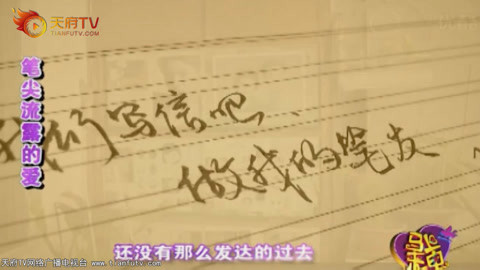 天府TV
TIANFUTV.COM
笔尖流露的爱
我们写信吧
做我的笔友
还没有那么发达的过去
天府TV网络广播电视台 www.tianfutv.com